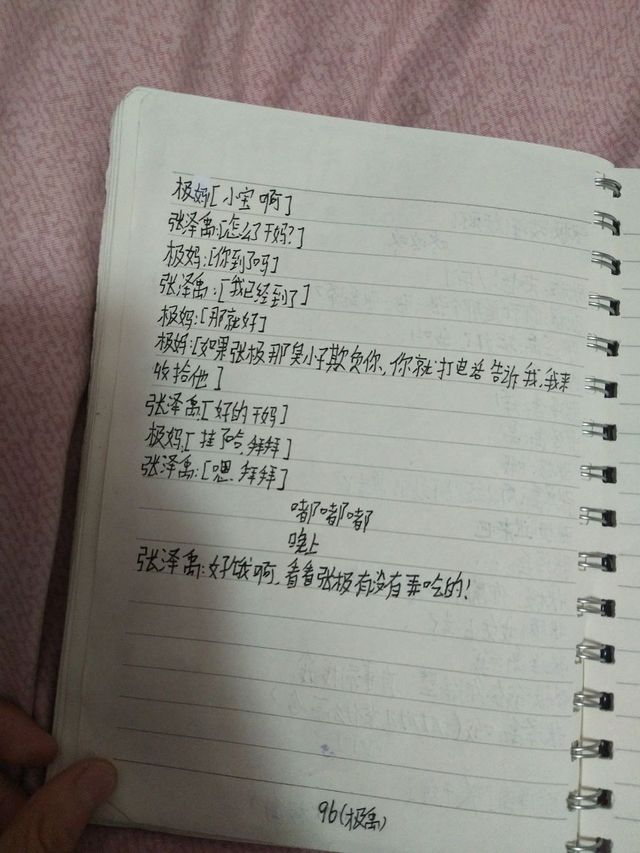 极妈[小宝啊]
张泽禹:[怎么了干妈?]
极妈:[你到了吗]
张泽禹:[我已经到了]
极妈:[那就好]
极妈:[如果张极那臭小子欺负你,你就打电话告诉我,我来
收拾他]
张泽禹[好的干妈]
极妈:[挂了哈,拜拜]
张泽禹:[嗯,拜拜]
嘟嘟嘟
晚上
张泽禹:好饿啊,看看张极有没有弄吃的!
96(极禹)